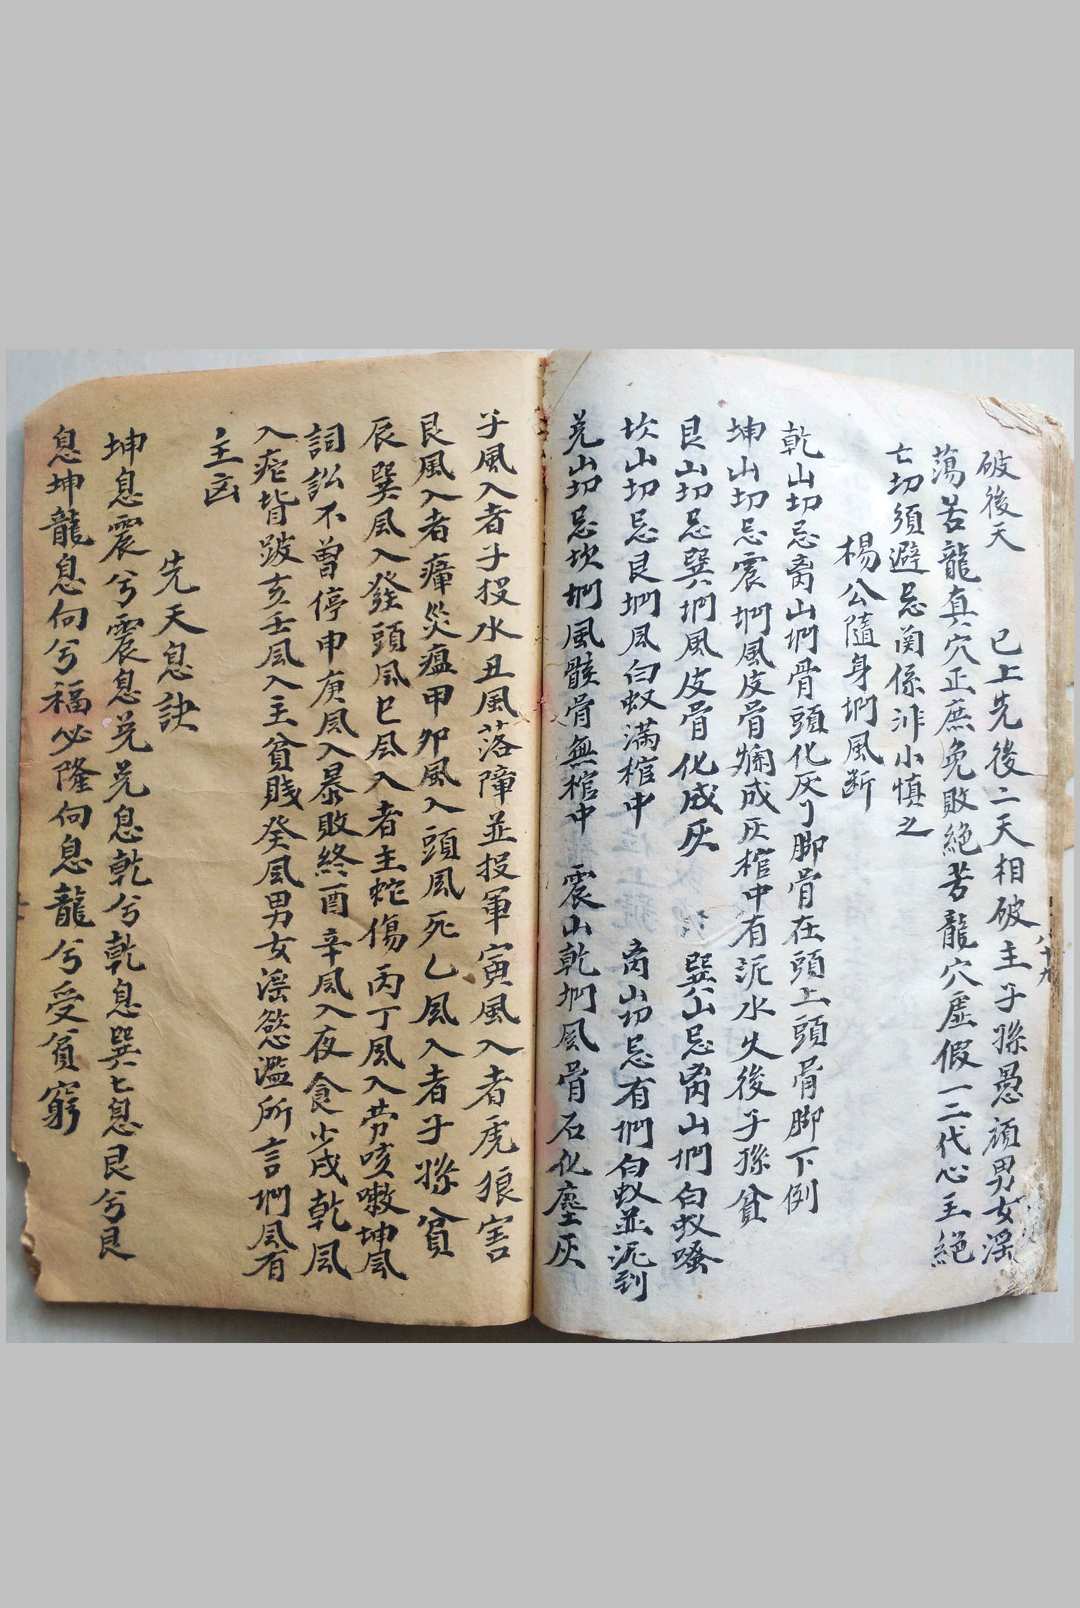 破後天 已上先後二天相破主子孫愚頑男女淫
蕩若龍真穴正庶免敗絕若龍穴虛假一二代心主絕
亡切須避忌関係非小慎之
楊公隨身㘯風断
乾山切忌离山㘯骨頭化灰了脚骨在頭上頭骨脚下倒
坤山切忌震㘯風皮骨㶽成灰棺中有泥水火後子孫貧
艮山切忌巽㘯風皮骨化成灰 巽山忌离山㘯白蚁嗑
坎山切忌艮㘯風白蚁滿棺中 离山切忌有㘯白蚁並泥到
兑山切忌坎㘯風骸骨無棺中 震山乾㘯風骨石化塵灰
八十九
子風入者子投水丑風落障並投軍寅風入者虎狼害
艮風入者瘴災瘟甲卯風入頭風死乙風入者子孫貧
辰巽風入發頭風巳風入者主蛇傷丙丁風入劳咳嗽坤風
詞訟不曾停申庚風入暴敗終酉辛風入夜食少戌乾風
入疕背跛亥壬風入主貧賤癸風男女淫慾濫所言㘯風有
主凶
先天息訣
坤息震兮震息兑兑息乾兮乾息巽巽息艮兮艮
息坤龍息向兮福必隆向息龍兮受貧窮